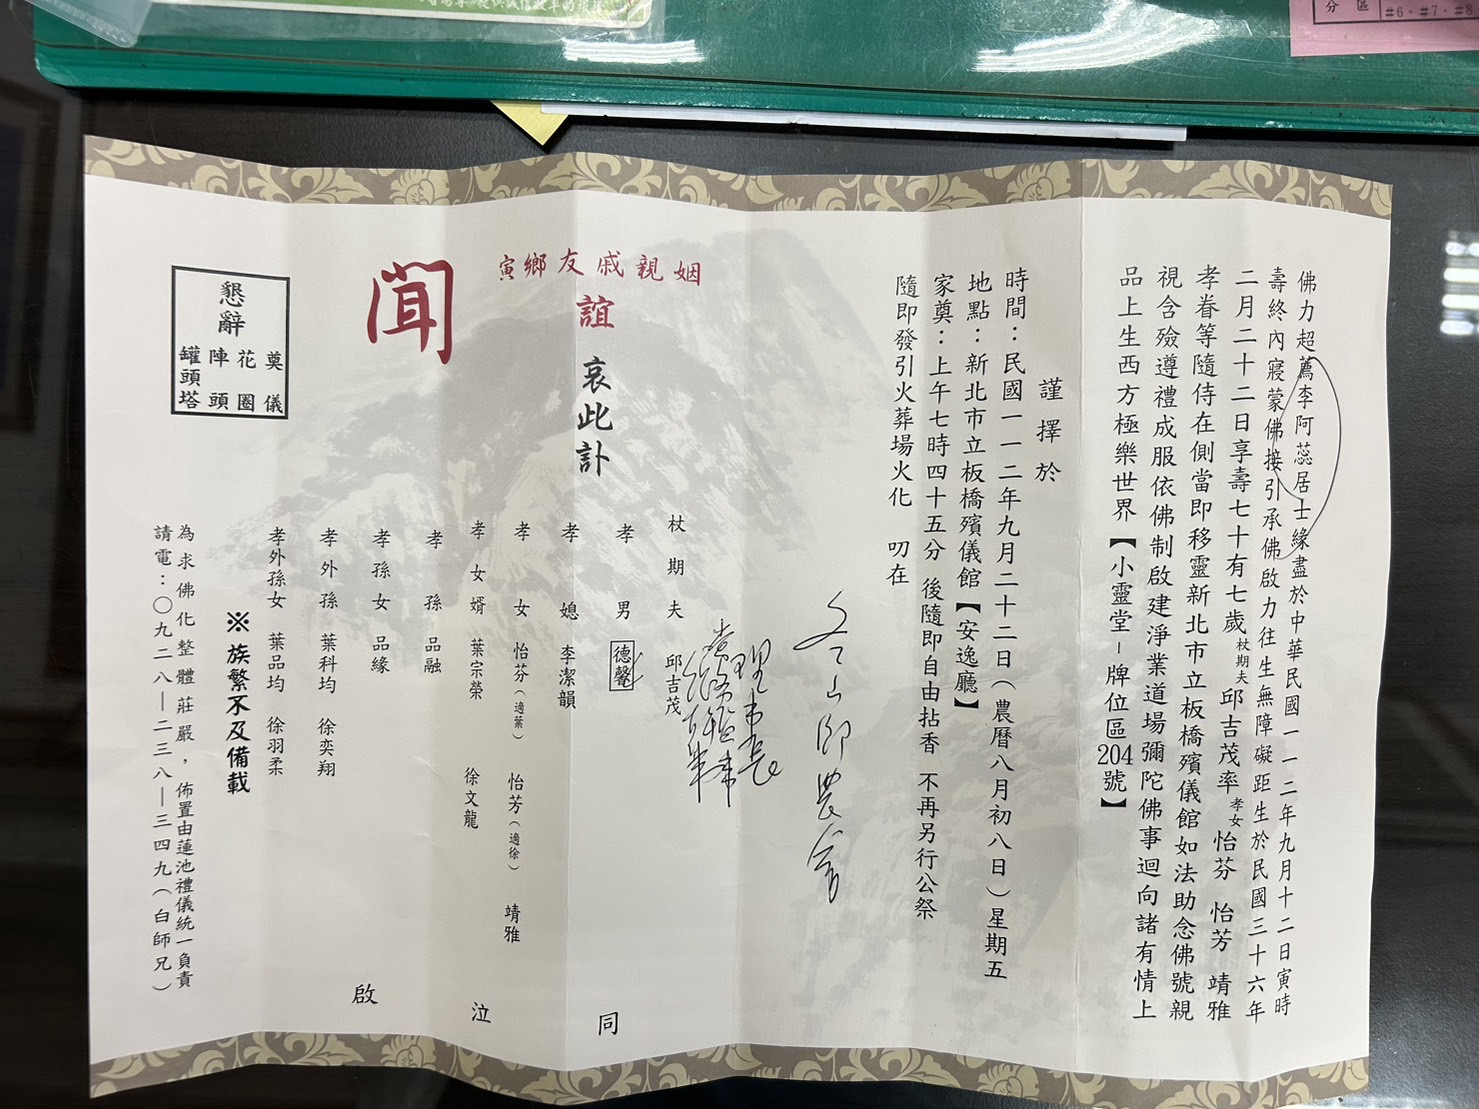 分區
#6、#7、#8
佛力超薦李阿蕊居士緣盡於中華民國一一二年九月十二日寅時
壽終內寢蒙佛接引承佛啟力往生無障礙距生於民國三十六年
二月二十二日享壽七十有七歲杖期夫邱吉茂率孝女怡芬 怡芳 靖雅
孝眷等隨侍在側當即移靈新北市立板橋殯儀館如法助念佛號親
視含殮遵禮成服依佛制啟建淨業道場彌陀佛事迴向諸有情上
品上生西方極樂世界【小靈堂-牌位區204號】
謹擇於
時間：民國一一二年九月二十二日（農曆八月初八日）星期五
地點：新北市立板橋殯儀館【安逸廳】
家奠：上午七時四十五分 後隨即自由拈香 不再另行公祭
隨即發引火葬場火化 叨在
姻親戚友鄉寅
誼 哀此訃
聞
杖期夫 邱吉茂
孝男 德馨
孝媳 李潔韻
孝女 怡芬（適葉） 怡芳（適徐） 靖雅
孝女婿 葉宗榮 徐文龍
孝孫 品融
孝孫女 品緣
孝外孫 葉科均 徐奕翔
孝外孫女 葉品均 徐羽柔
同
泣
啟
※族繁不及備載
懇辭
奠儀
花圈
陣頭
罐頭塔
為求佛化整體莊嚴，佈置由蓮池禮儀統一負責
請電：〇九二八—二三八—三四九（白師兄）